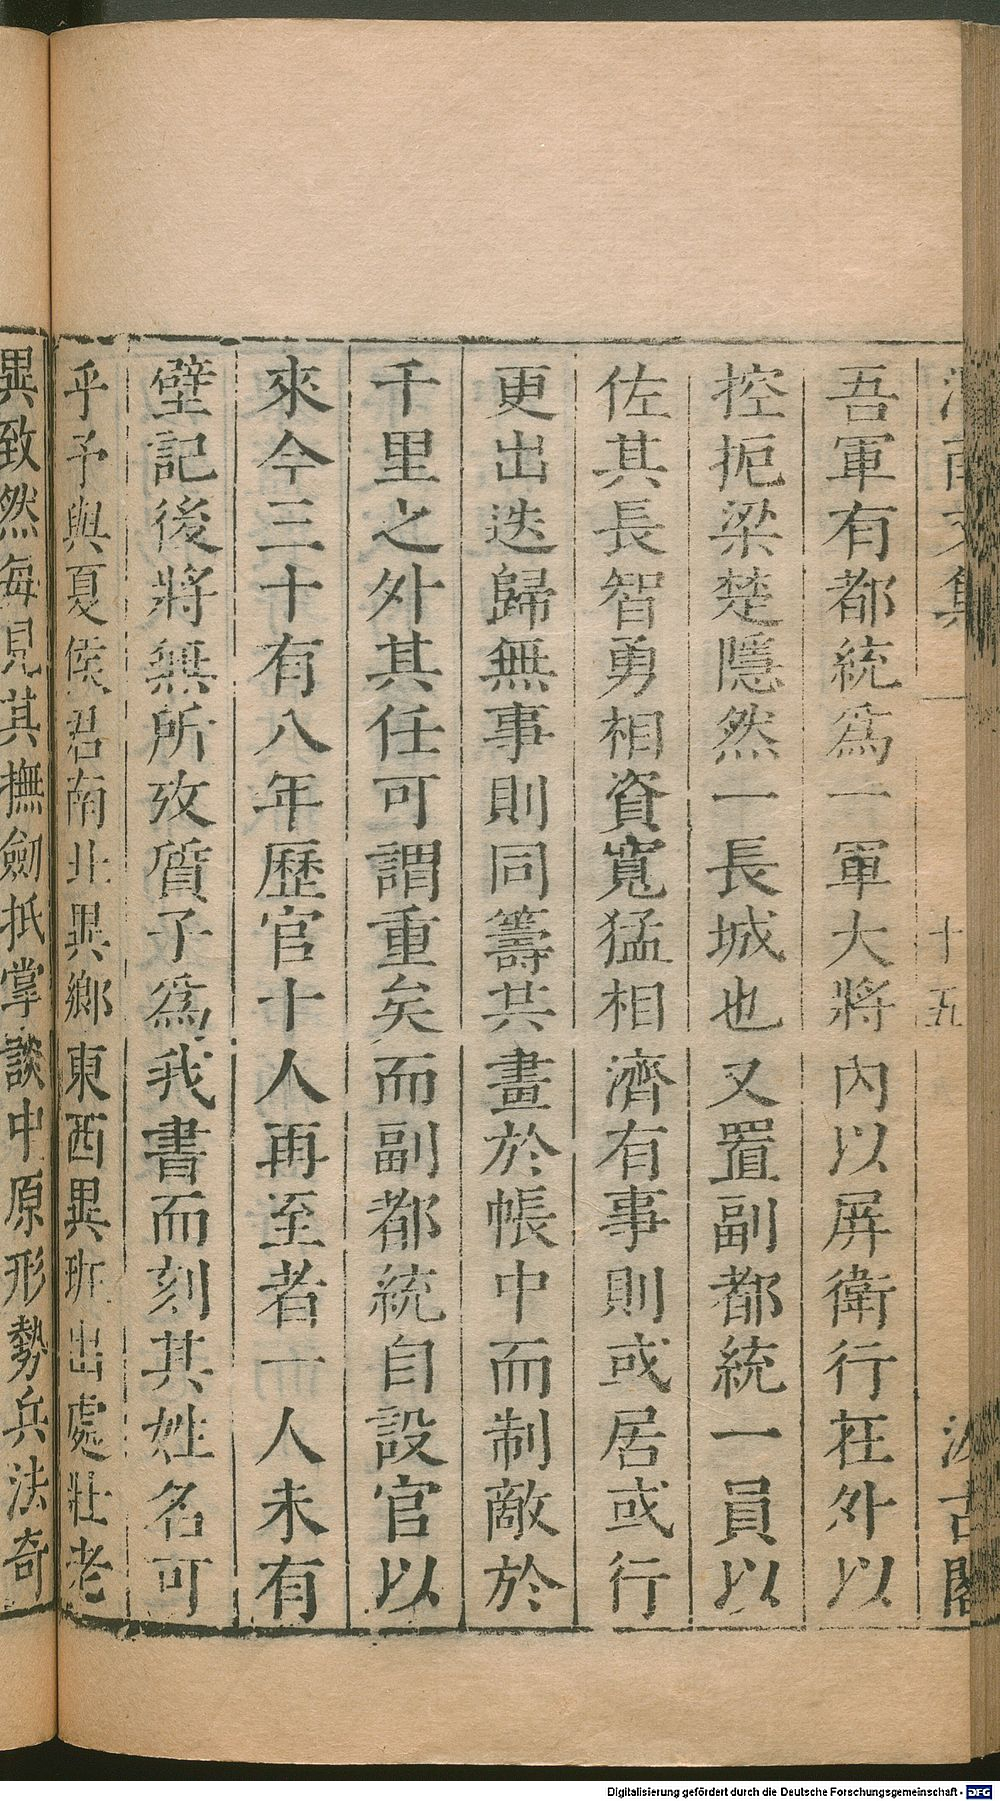 文集
十五
汲古閣
吾軍有都統爲一軍大將內以屏衛行在外以
控扼梁楚隱然一長城也又置副都統一員以
佐其長智勇相資寬猛相濟有事則或居或行
更出迭歸無事則同籌共畫於帳中而制敵於
千里之外其任可謂重矣而副都統自設官以
來今三十有八年歷官十人再至者一人未有
壁記後將無所攷質子爲我書而刻其姓名可
乎予與夏侯君南北異鄉東西異班出處壯老
異致然每見其撫劒抵掌談中原形勢兵法奇
Digitalisierung gefördert durch die Deutsche Forschungsgemeinschaft - DFG